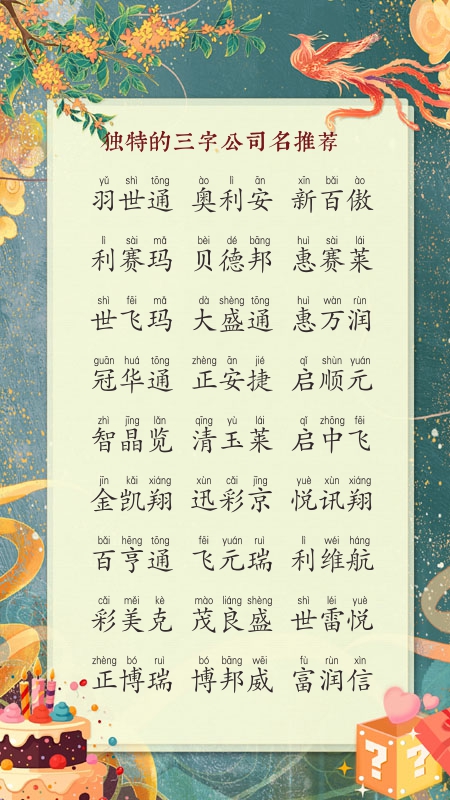 独特的三字公司名推荐
yǔ shì tōng ào lì ān xīn bǎi ào
羽世通 奥利安 新百傲
lì sài mǎ bèi dé bāng huì sài lái
利赛玛 贝德邦 惠赛莱
shì fēi mǎ dà shèng tōng huì wàn rùn
世飞玛 大盛通 惠万润
guān huá tōng zhèng ān jié qǐ shùn yuán
冠华通 正安捷 启顺元
zhì jīng lǎn qīng yù lái qǐ zhōng fēi
智晶览 清玉莱 启中飞
jīn kǎi xiáng xùn cǎi jīng yuè xùn xiáng
金凯翔 迅彩京 悦讯翔
bǎi hēng tōng fēi yuán ruì lì wéi háng
百亨通 飞元瑞 利维航
cǎi měi kè mào liáng shèng shì léi yuè
彩美克 茂良盛 世雷悦
zhèng bó ruì bó bāng wēi fù rùn xìn
正博瑞 博邦威 富润信
? ?